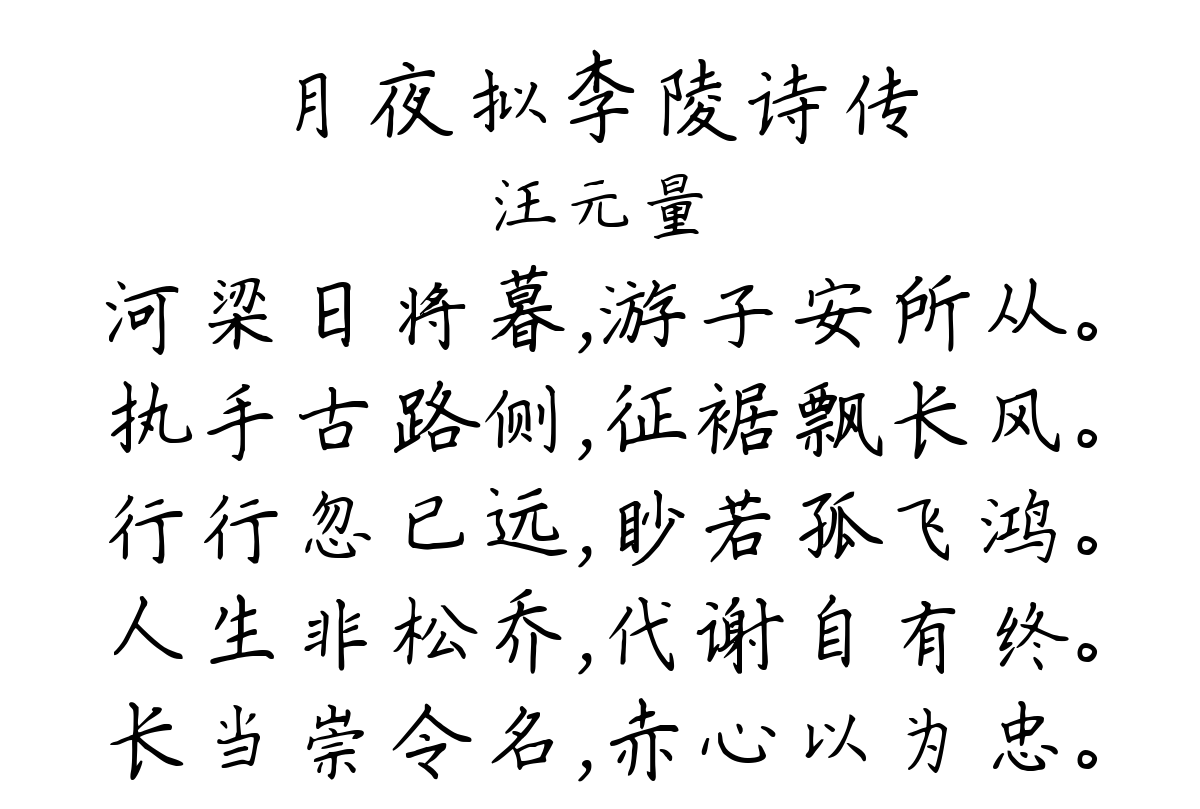 月夜拟李陵诗传
汪元量
河梁日将暮,游子安所从。
执手古路侧,征裾飘长风。
行行忽已远,眇若孤飞鸿。
人生非松乔,代谢自有终。
长当崇令名,赤心以为忠。